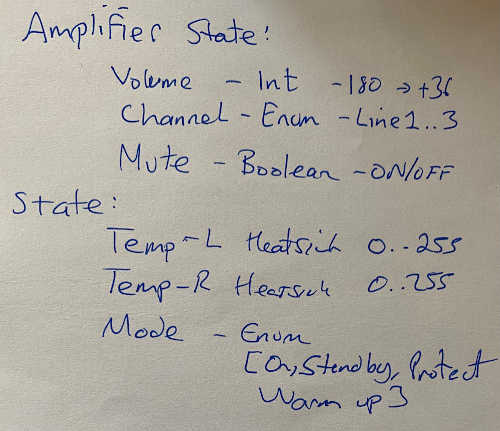 Amplifier State:
Volume - Int -180 → +36
Channel - Enum - Line1..3
Mute - Boolean - ON/OFF
State:
Temp-L Heatsink 0..255
Temp-R Heatsink 0..255
Mode - Enum
[On, Standby, Protect
Warm up]